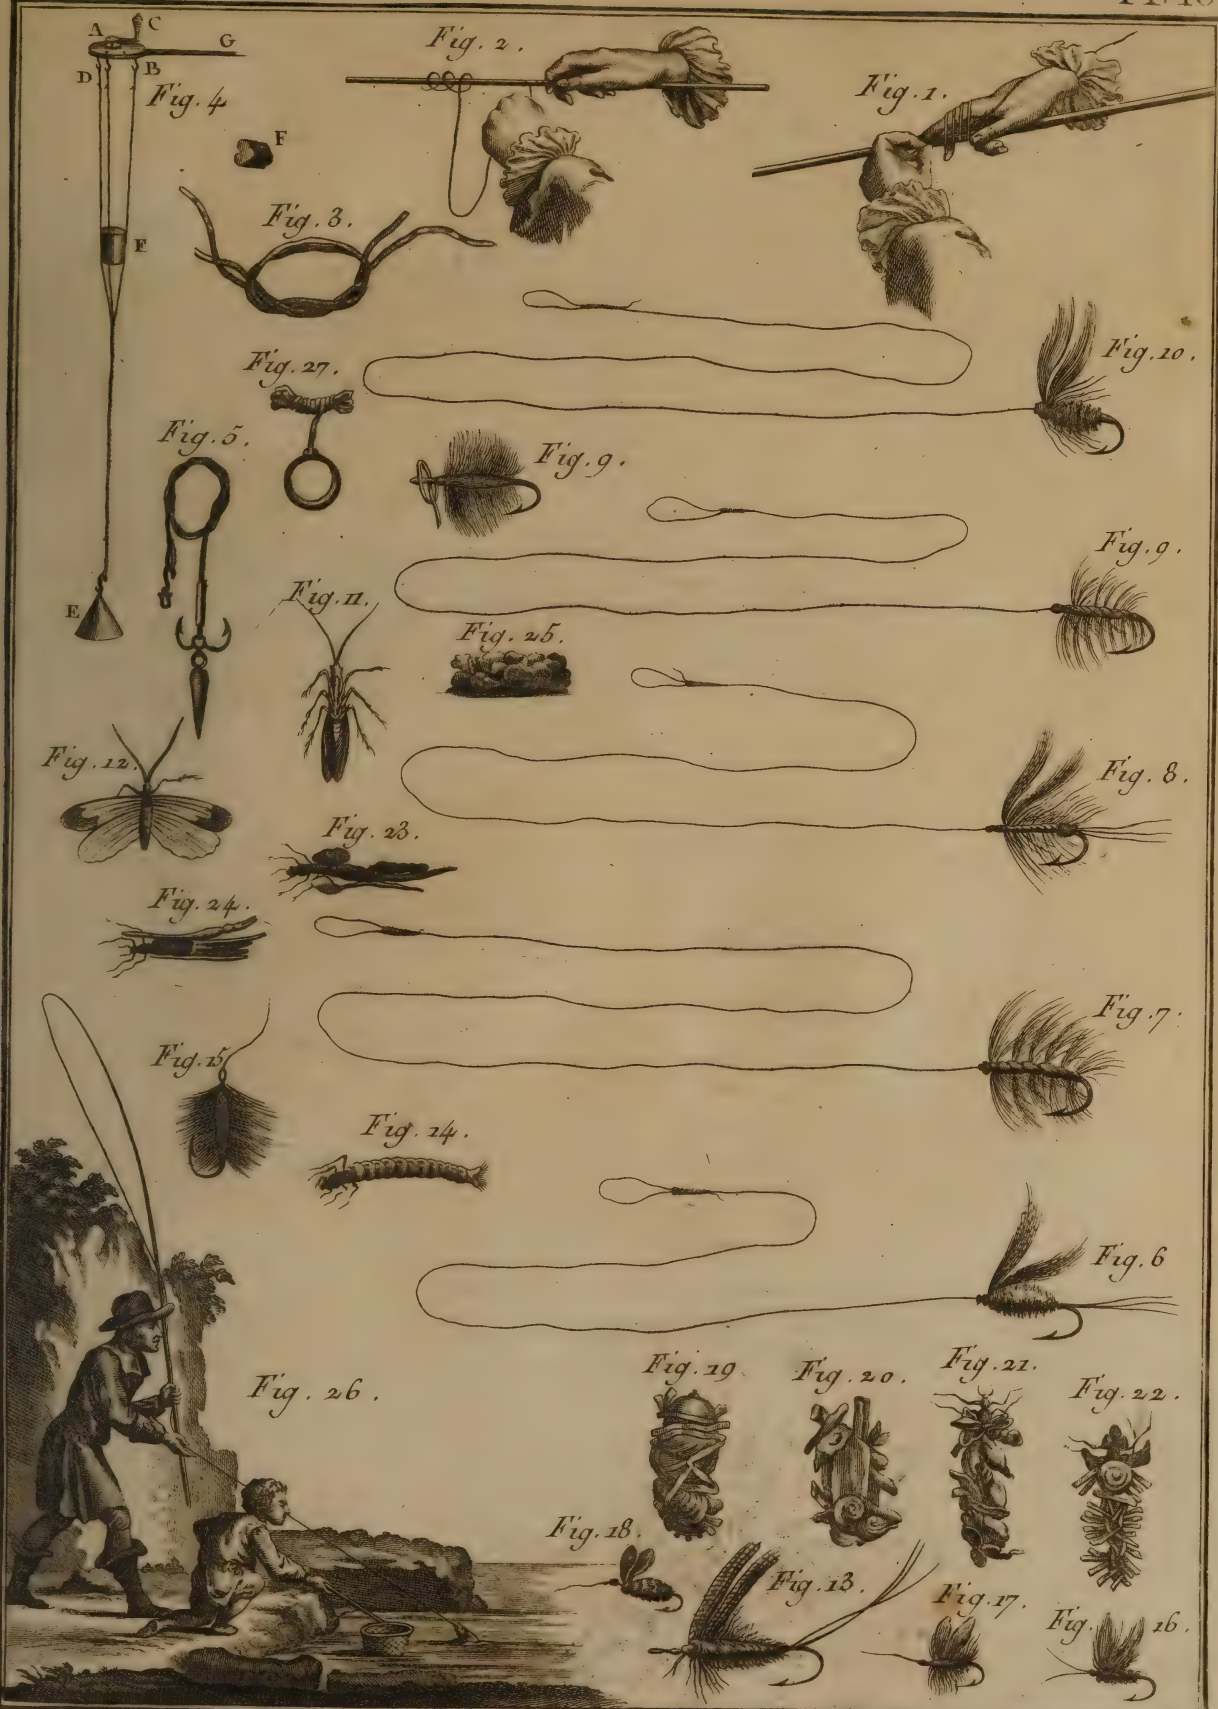 A
C
G
D
B
Fig. 4
Fig. 2.
Fig. 1.
F
Fig. 3.
E
Fig. 10.
Fig. 27.
Fig. 5.
Fig. 9.
Fig. 9.
E
Fig. 11.
Fig. 25.
Fig. 12.
Fig. 8.
Fig. 23.
Fig. 24.
Fig. 7.
Fig. 15
Fig. 14.
Fig. 6
Fig. 26.
Fig. 19.
Fig. 20.
Fig. 21.
Fig. 22.
Fig. 18.
Fig. 13.
Fig. 17.
Fig. 16.